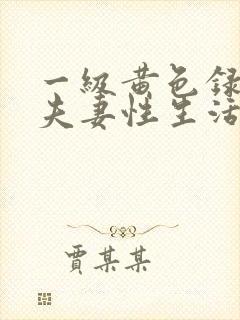 一级黄色録
夫妻性生活
贾某某